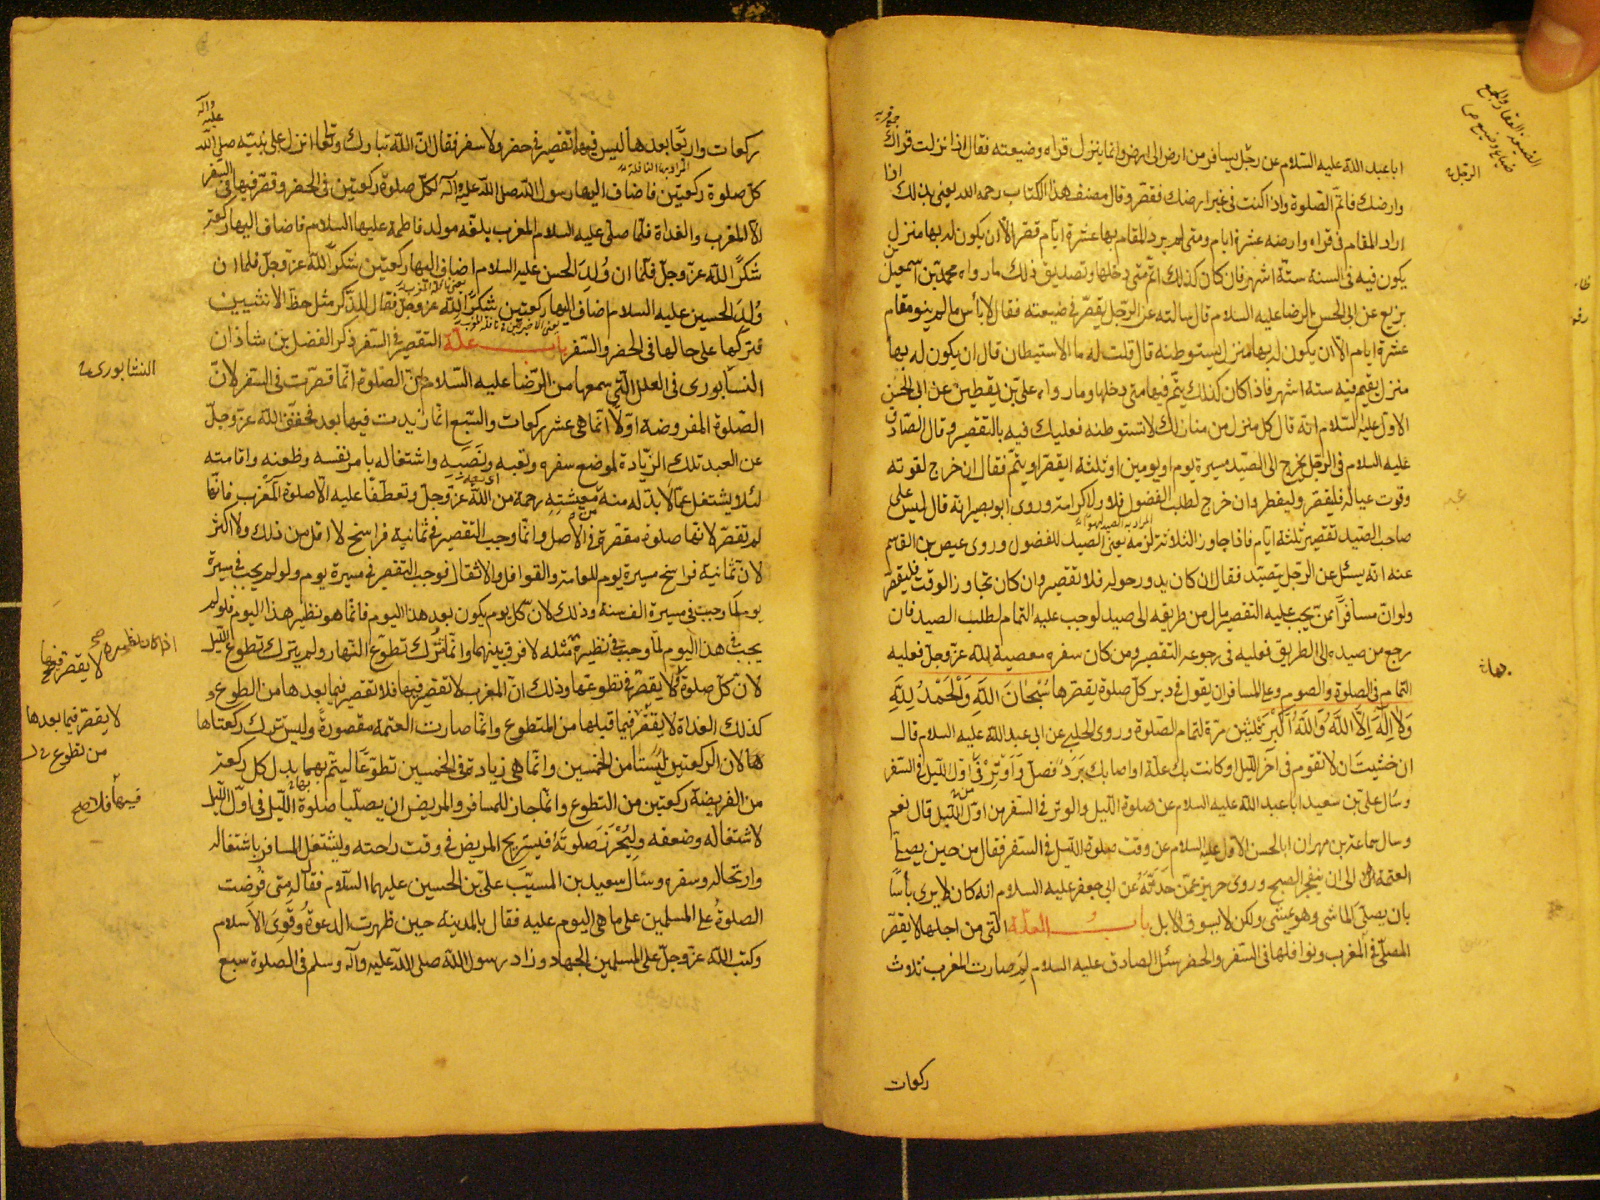 ابا عبد الله عليه السلام عن رجل يسافر من ارض الى ارض وانما ينزل قراه وضيعته فقال اذا نزلت قراك
وارضك فاتم الصلوة واذا كنت فى غير ارضك فقصر وقال مصنف هذا الكتاب رحمه الله يعنى بذلك اذا
اراد المقام فى قراه وارضه عشرة ايام ومتى لم يرد المقام بها عشرة ايام قصر الا ان يكون له بها منزل
يكون فيه فى السنة ستة اشهر فان كان كذلك اتم متى دخلها وتصديق ذلك ما رواه محمد بن اسمعيل
بزيع عن ابى الحسن الرضا عليه السلام قال سالته عن الرجل يقصر فى ضيعته فقال لا بأس ما لم ينو مقام
عشرة ايام الا ان يكون له بها منزل يستوطنه قال قلت له ما الاستيطان قال ان يكون له بها
منزل يقيم فيه ستة اشهر فاذا كان كذلك يتم فيها متى دخلها وما رواه على بن يقطين عن ابى الحسن
الاول عليه السلام انه قال كل منزل من منازلك لا تستوطنه فعليك فيه بالتقصير وقال الصادق
عليه السلام فى الرجل يخرج الى الصيد مسيرة يوم او يومين او ثلثة ايقصر او يتم فقال ان خرج لقوته
وقوت عياله فليقصر وليفطر وان خرج لطلب الفضول فلا ولا كرامة وروى ابو بصير انه قال ليس على
صاحب الصيد تقصير ثلثة ايام فاذا جاوز الثلاثة لزمه يعنى الصيد للفضول وروى عيص بن القسم
عنه انه سئل عن الرجل يتصيد فقال ان كان يدور حوله فلا تقصير وان كان تجاوز الوقت فليقصر
ولو ان مسافرا ممن يجب عليه التقصير مال من طريقه الى صيد لوجب عليه التمام لطلب الصيد فان
رجع من صيده الى الطريق فعليه فى رجوعه التقصير ومن كان سفره معصية لله عز وجل فعليه
التمام فى الصلوة والصوم وعلى المسافر ان يقول فى دبر كل صلوة يقصرها سُبْحَانَ اللهِ وَالْحَمْدُ لِلّٰهِ
وَلَا اِلٰهَ اِلَّا اللهُ وَاللهُ اَكْبَرُ ثلثين مرة لتمام الصلوة وروى الحلبى عن ابى عبد الله عليه السلام قال
ان خشيت ان لا تقوم فى آخر الليل او كانت بك علة او اصابك برد فصل واوتر فى اول الليل فى السفر
وسال على بن سعيد ابا عبد الله عليه السلام عن صلوة الليل والوتر فى السفر من اول الليل قال نعم
وسال سماعة بن مهران ابا الحسن الاول عليه السلام عن وقت صلوة الليل فى السفر فقال من حين يصلى
العتمة الى ان ينفجر الصبح وروى حريز عمن حدثه عن ابى جعفر عليه السلام انه كان لا يرى بأسا
بان يصلى الماشى وهو يمشى ولكن لا يسوق الابل باب العلة التى من اجلها لا يقصر
المصلى فى المغرب ونوافلها فى السفر والحضر سئل الصادق عليه السلام لم صارت المغرب ثلاث
ركعات
الرجل
ركعات واربعا بعدها ليس فيها تقصير فى حضر ولا سفر فقال ان الله تبارك وتعالى انزل على نبيه صلى الله عليه وآله
كل صلوة ركعتين فاضاف اليها رسول الله صلى الله عليه وآله لكل صلوة ركعتين فى الحضر وقصر فيها فى السفر
الا المغرب والغداة فلما صلى عليه السلام المغرب بلغه مولد فاطمة عليها السلام فاضاف اليها ركعة
شكرا لله عز وجل فلما ان وُلِدَ الحسن عليه السلام اضاف اليها ركعتين شكرا لله عز وجل فلما ان
وُلِدَ الحسين عليه السلام اضاف اليها ركعتين شكرا لله عز وجل فقال للذكر مثل حظ الانثيين
فتركها على حالها فى الحضر والسفر باب علة التقصير فى السفر ذكر الفضل بن شاذان
النسابورى فى العلل التى سمعها من الرضا عليه السلام ان الصلوة انما قصرت فى السفر لان
الصلوة المفروضة اولا انما هى عشر ركعات والسبع انما زيدت فيها بعد فخفف الله عز وجل
عن العبد تلك الزيادة لموضع سفره وتعبه ونصبه واشتغاله بامر نفسه وظعنه واقامته
لئلا يشتغل عما لا بد له منه من معيشته رحمة من الله عز وجل وتعطفا عليه الا صلوة المغرب فانها
لم تقصر لانها صلوة مقصرة فى الاصل وانما وجب التقصير فى ثمانية فراسخ لا اقل من ذلك ولا اكثر
لان ثمانية فراسخ مسيرة يوم للعامة والقوافل والاثقال فوجب التقصير فى مسيرة يوم ولو لم يجب فى مسيرة
يوم لما وجب فى مسيرة الف سنة وذلك لان كل يوم يكون بعد هذا اليوم فانما هو نظير هذا اليوم فلو لم
يجب فى هذا اليوم لما وجب فى نظيره مثله لا فرق بينهما وانما ترك تطوع النهار ولم يترك تطوع الليل
لان كل صلوة لا يقصر فى تطوعها وذلك ان المغرب لا تقصير فيها فلا تقصير فيما بعدها من التطوع و
كذلك الغداة لا يقصر فيما قبلها من التطوع وانما صارت العتمة مقصورة وليس تترك ركعتاها
لان الركعتين ليستا من الخمسين وانما هى زيادة فى الخمسين تطوعا ليتم بهما بدل كل ركعة
من الفريضة ركعتين من التطوع وانما جاز للمسافر والمريض ان يصليا صلوة الليل فى اول الليل
لاشتغاله وضعفه وليحرز صلوته فيستريح المريض فى وقت راحته وليشتغل المسافر باشتغاله
وارتحاله وسفره وسئال سعيد بن المسيب على بن الحسين عليهما السلام فقال له متى فُرضت
الصلوةُ على المسلمين على ما هى اليوم عليه فقال بالمدينة حين ظهرت الدعوةُ وقَوِىَ الاسلام
وكتب الله عز وجل على المسلمين الجهاد وزاد رسول الله صلى الله عليه وآله وسلم فى الصلوة سبع
النشابورى
لا يقصر فيها
لا يقصر فيما بعدها
من تطوع
فيها فلا